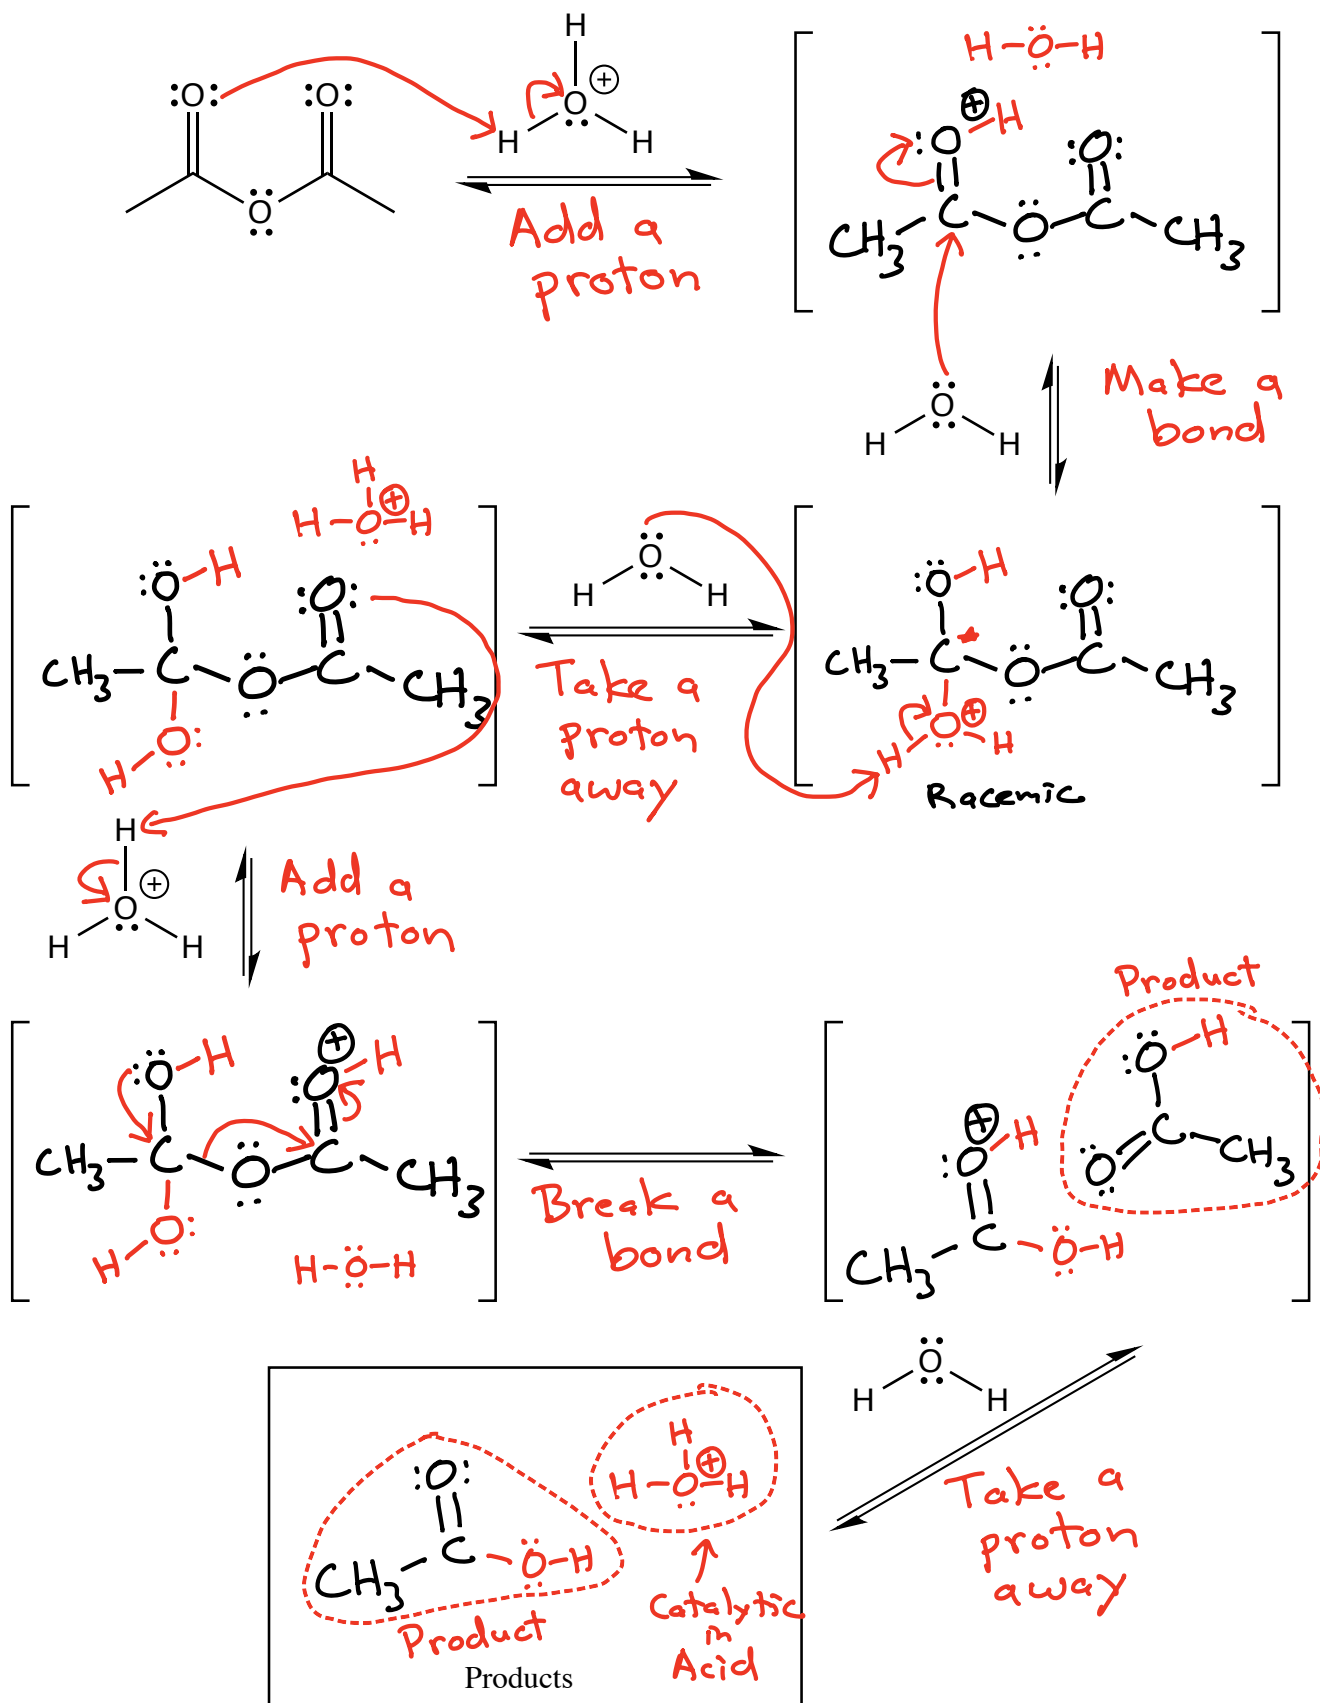 :O: :O:
H
O ⊕
H H
O
Add a
proton
H-O-H
⊕
:O-H :O:
CH3 C O C CH3
H O H
Make a
bond
H
H-O-H ⊕
:O-H :O:
CH3-C-O-C-CH3
H-O:
H O H
Take a
proton
away
:O-H :O:
CH3-C-O-C-CH3
H O ⊕ H
Racemic
H
O ⊕
H H
Add a
proton
⊕
:O-H :O-H
CH3-C-O-C-CH3
H-O:
H-O-H
Break a
bond
Product
:O-H
C-CH3
O
⊕
:O-H
C
CH3 O-H
H O H
Take a
proton
away
:O:
C
CH3 O-H
Product
H
H-O-H ⊕
Catalytic
in
Acid
Products